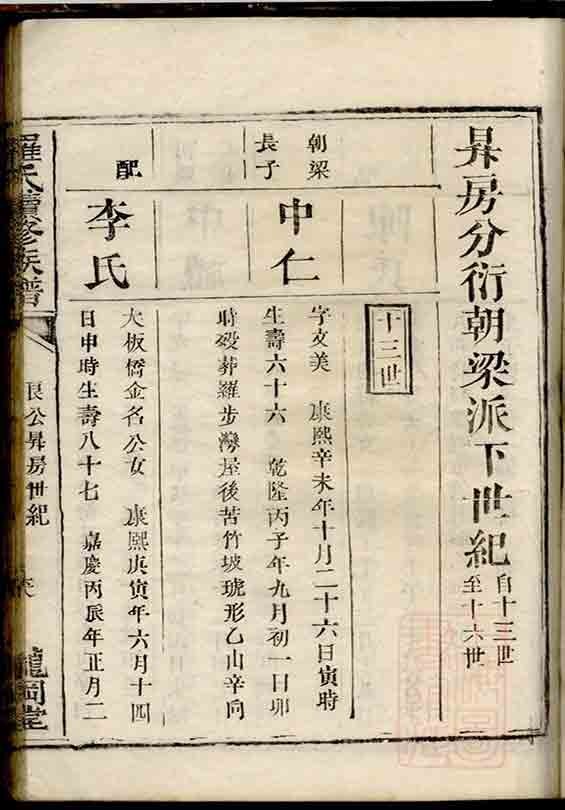 昇房分衍朝梁派下世紀
自十三世
至十六世
十三世
朝梁
長子
中仁
字文美 康熙辛未年十月二十六日寅時
生壽六十六 乾隆丙子年九月初一日卯
時歿葬羅步灣屋後苦竹坡琥形乙山辛向
配
李氏
大板橋金名公女 康熙庚寅年六月十四
日申時生壽八十七 嘉慶丙辰年正月二
羅氏續修族譜
良公昇房世紀
龍岡堂